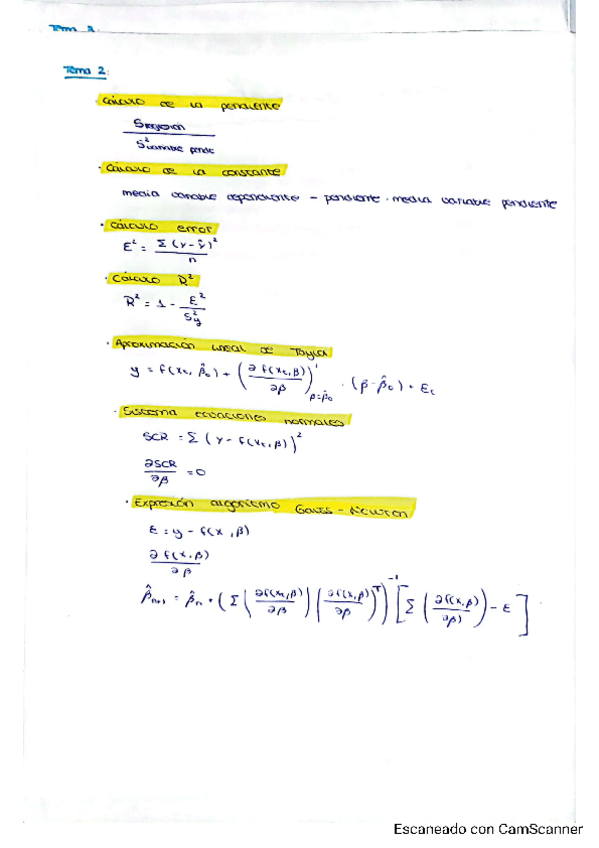 Tema 2:
· Cálculo de la pendiente
S regresión / S² variable pende
· Cálculo de la constante
media variable dependiente - pendiente · media variable pendiente
· Cálculo error
E² = Σ (y - ŷ)² / n
· Cálculo R²
R² = 1 - E² / S²y
· Aproximación lineal de Taylor
y = f(xt, β̂0) + (∂ f(xt, β) / ∂β)' β=β̂0 · (β - β̂0) + Et
· Sistema ecuaciones normales
SCR = Σ (y - f(xt, β))²
∂SCR / ∂β = 0
· Expresión algoritmo Gauss - Newton
E = y - f(x, β)
∂ f(x, β) / ∂β
β̂n+1 = β̂n + (Σ (∂f(xt, β) / ∂β) (∂f(x, β) / ∂β)ᵀ)⁻¹ [Σ (∂f(x, β) / ∂β) - E]
Escaneado con CamScanner